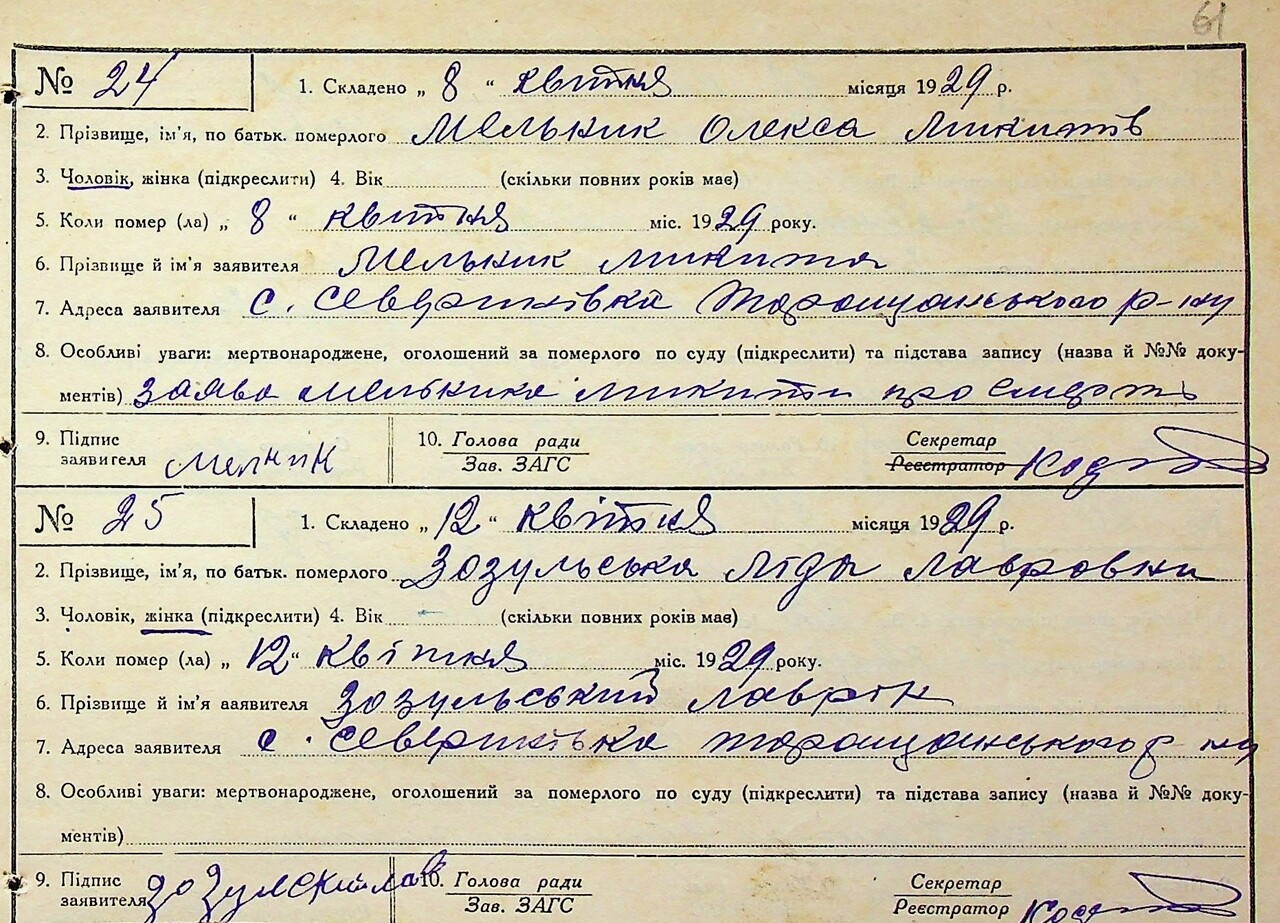 61
№ 24 1. Складено „ 8 “ квітня місяця 1929 р.
2. Прізвище, ім'я, по батьк. померлого Мельник Олекса Микитів
3. Чоловік, жінка (підкреслити) 4. Вік (скільки повних років має)
5. Коли помер (ла) „ 8 “ квітня міс. 1929 року.
6. Прізвище й ім'я заявителя Мельник Микита
7. Адреса заявителя с. Северинівка Таращанського р-ну
8. Особливі уваги: мертвонароджене, оголошений за померлого по суду (підкреслити) та підстава запису (назва й №№ доку-
ментів) заява Мельника Микити про смерть
9. Підпис заявителя Мелник 10. Голова ради Зав. ЗАГС Секретар Реєстратор
№ 25 1. Складено „ 12 “ квітня місяця 1929 р.
2. Прізвище, ім'я, по батьк. померлого Зозульська Ліда Лавровна
3. Чоловік, жінка (підкреслити) 4. Вік (скільки повних років має)
5. Коли помер (ла) „ 12 “ квітня міс. 1929 року.
6. Прізвище й ім'я аявителя ЗозульськийLáврін
7. Адреса заявителя с. Северинівка Таращанського р-ну
8. Особливі уваги: мертвонароджене, оголошений за померлого по суду (підкреслити) та підстава запису (назва й №№ доку-
ментів)
9. Підпис заявителя 10. Голова ради Зав. ЗАГС Секретар Реєстратор